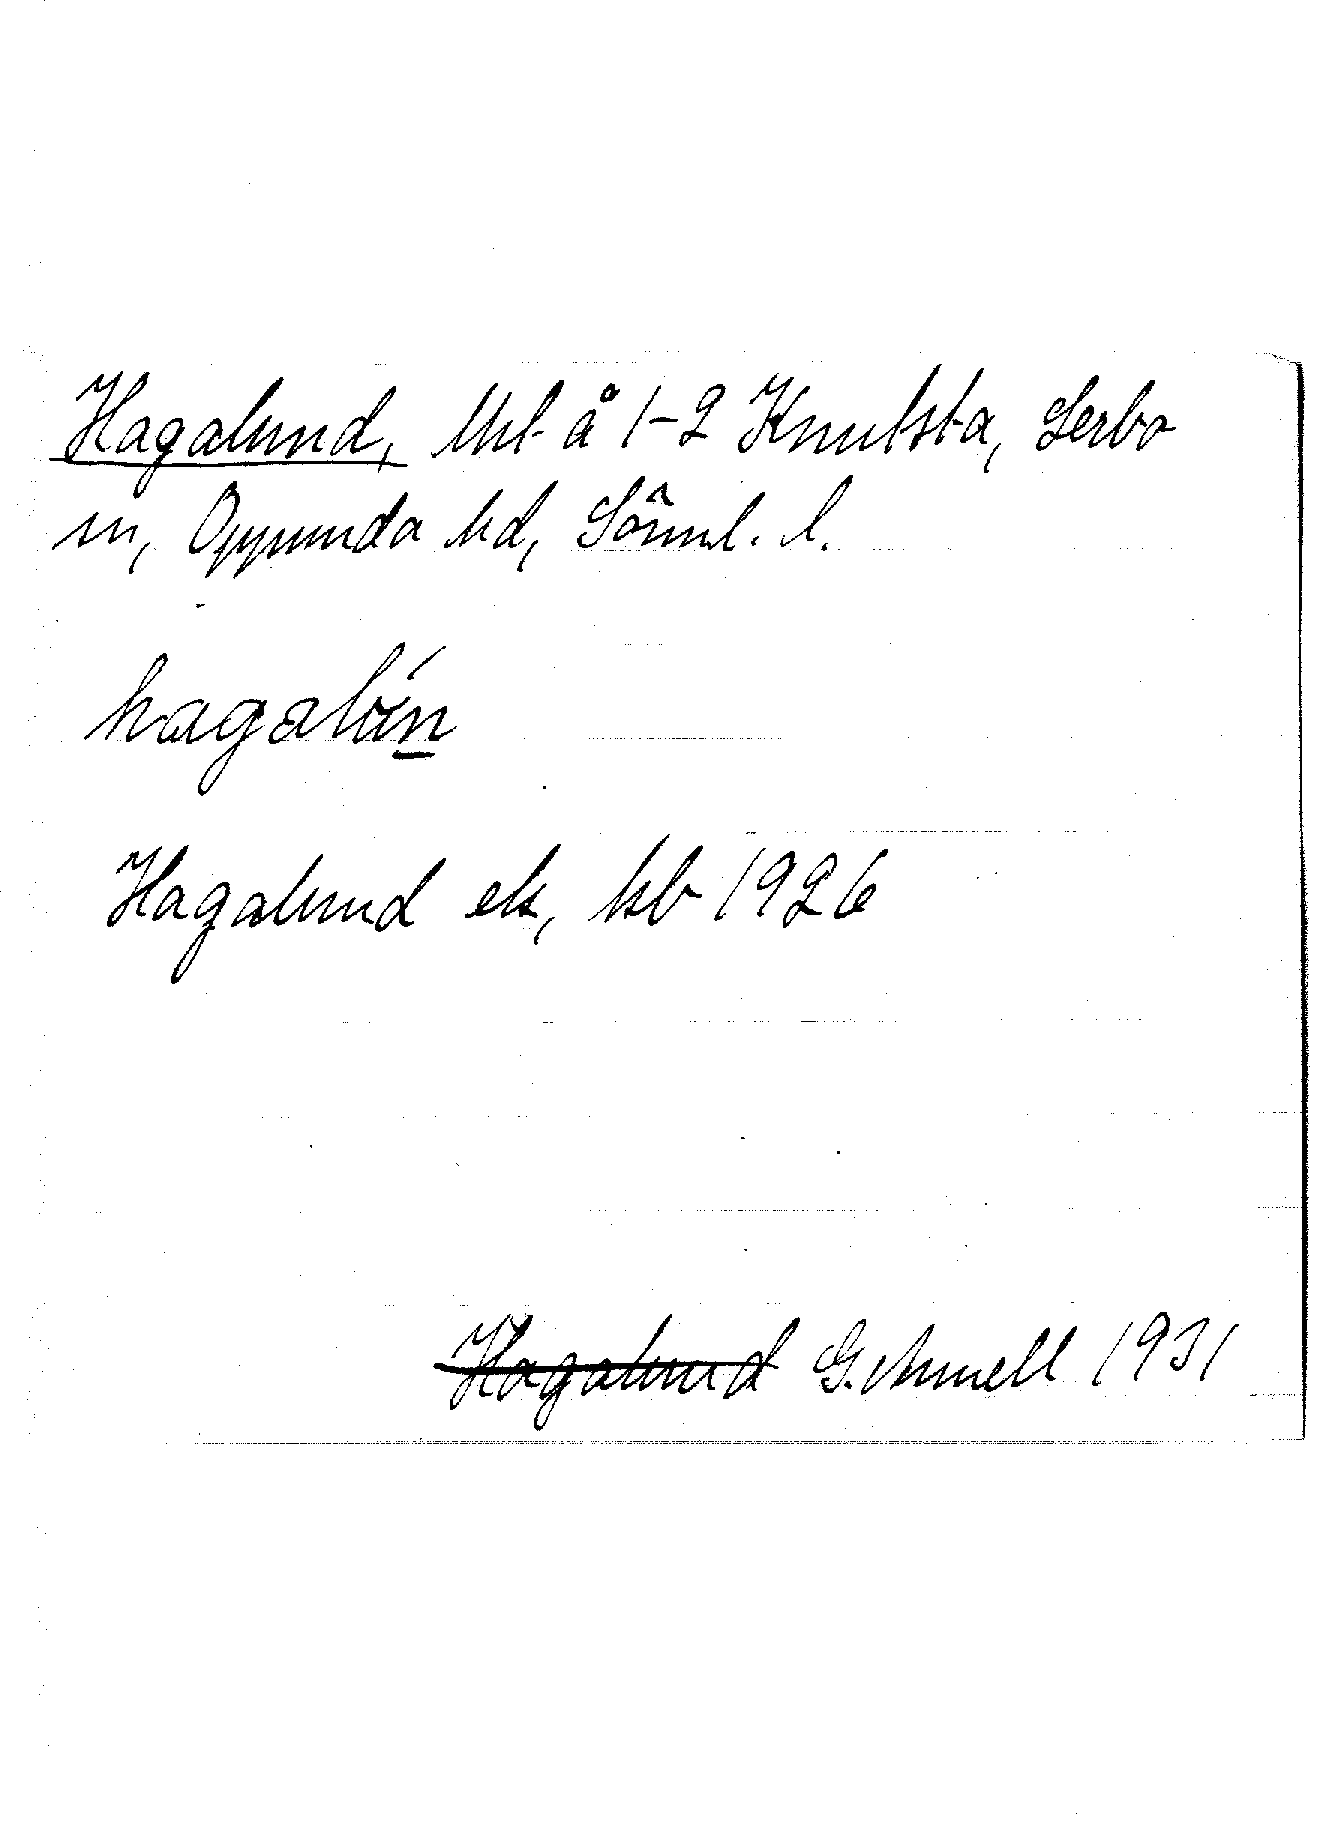 Hagalund, Utl å 1-2 Knutsta, Lerbo
sn, Oppunda hd, Sörml. l.
hagalún
Hagalund ek, kb 1926
Hagalund G. Ahnell 1931